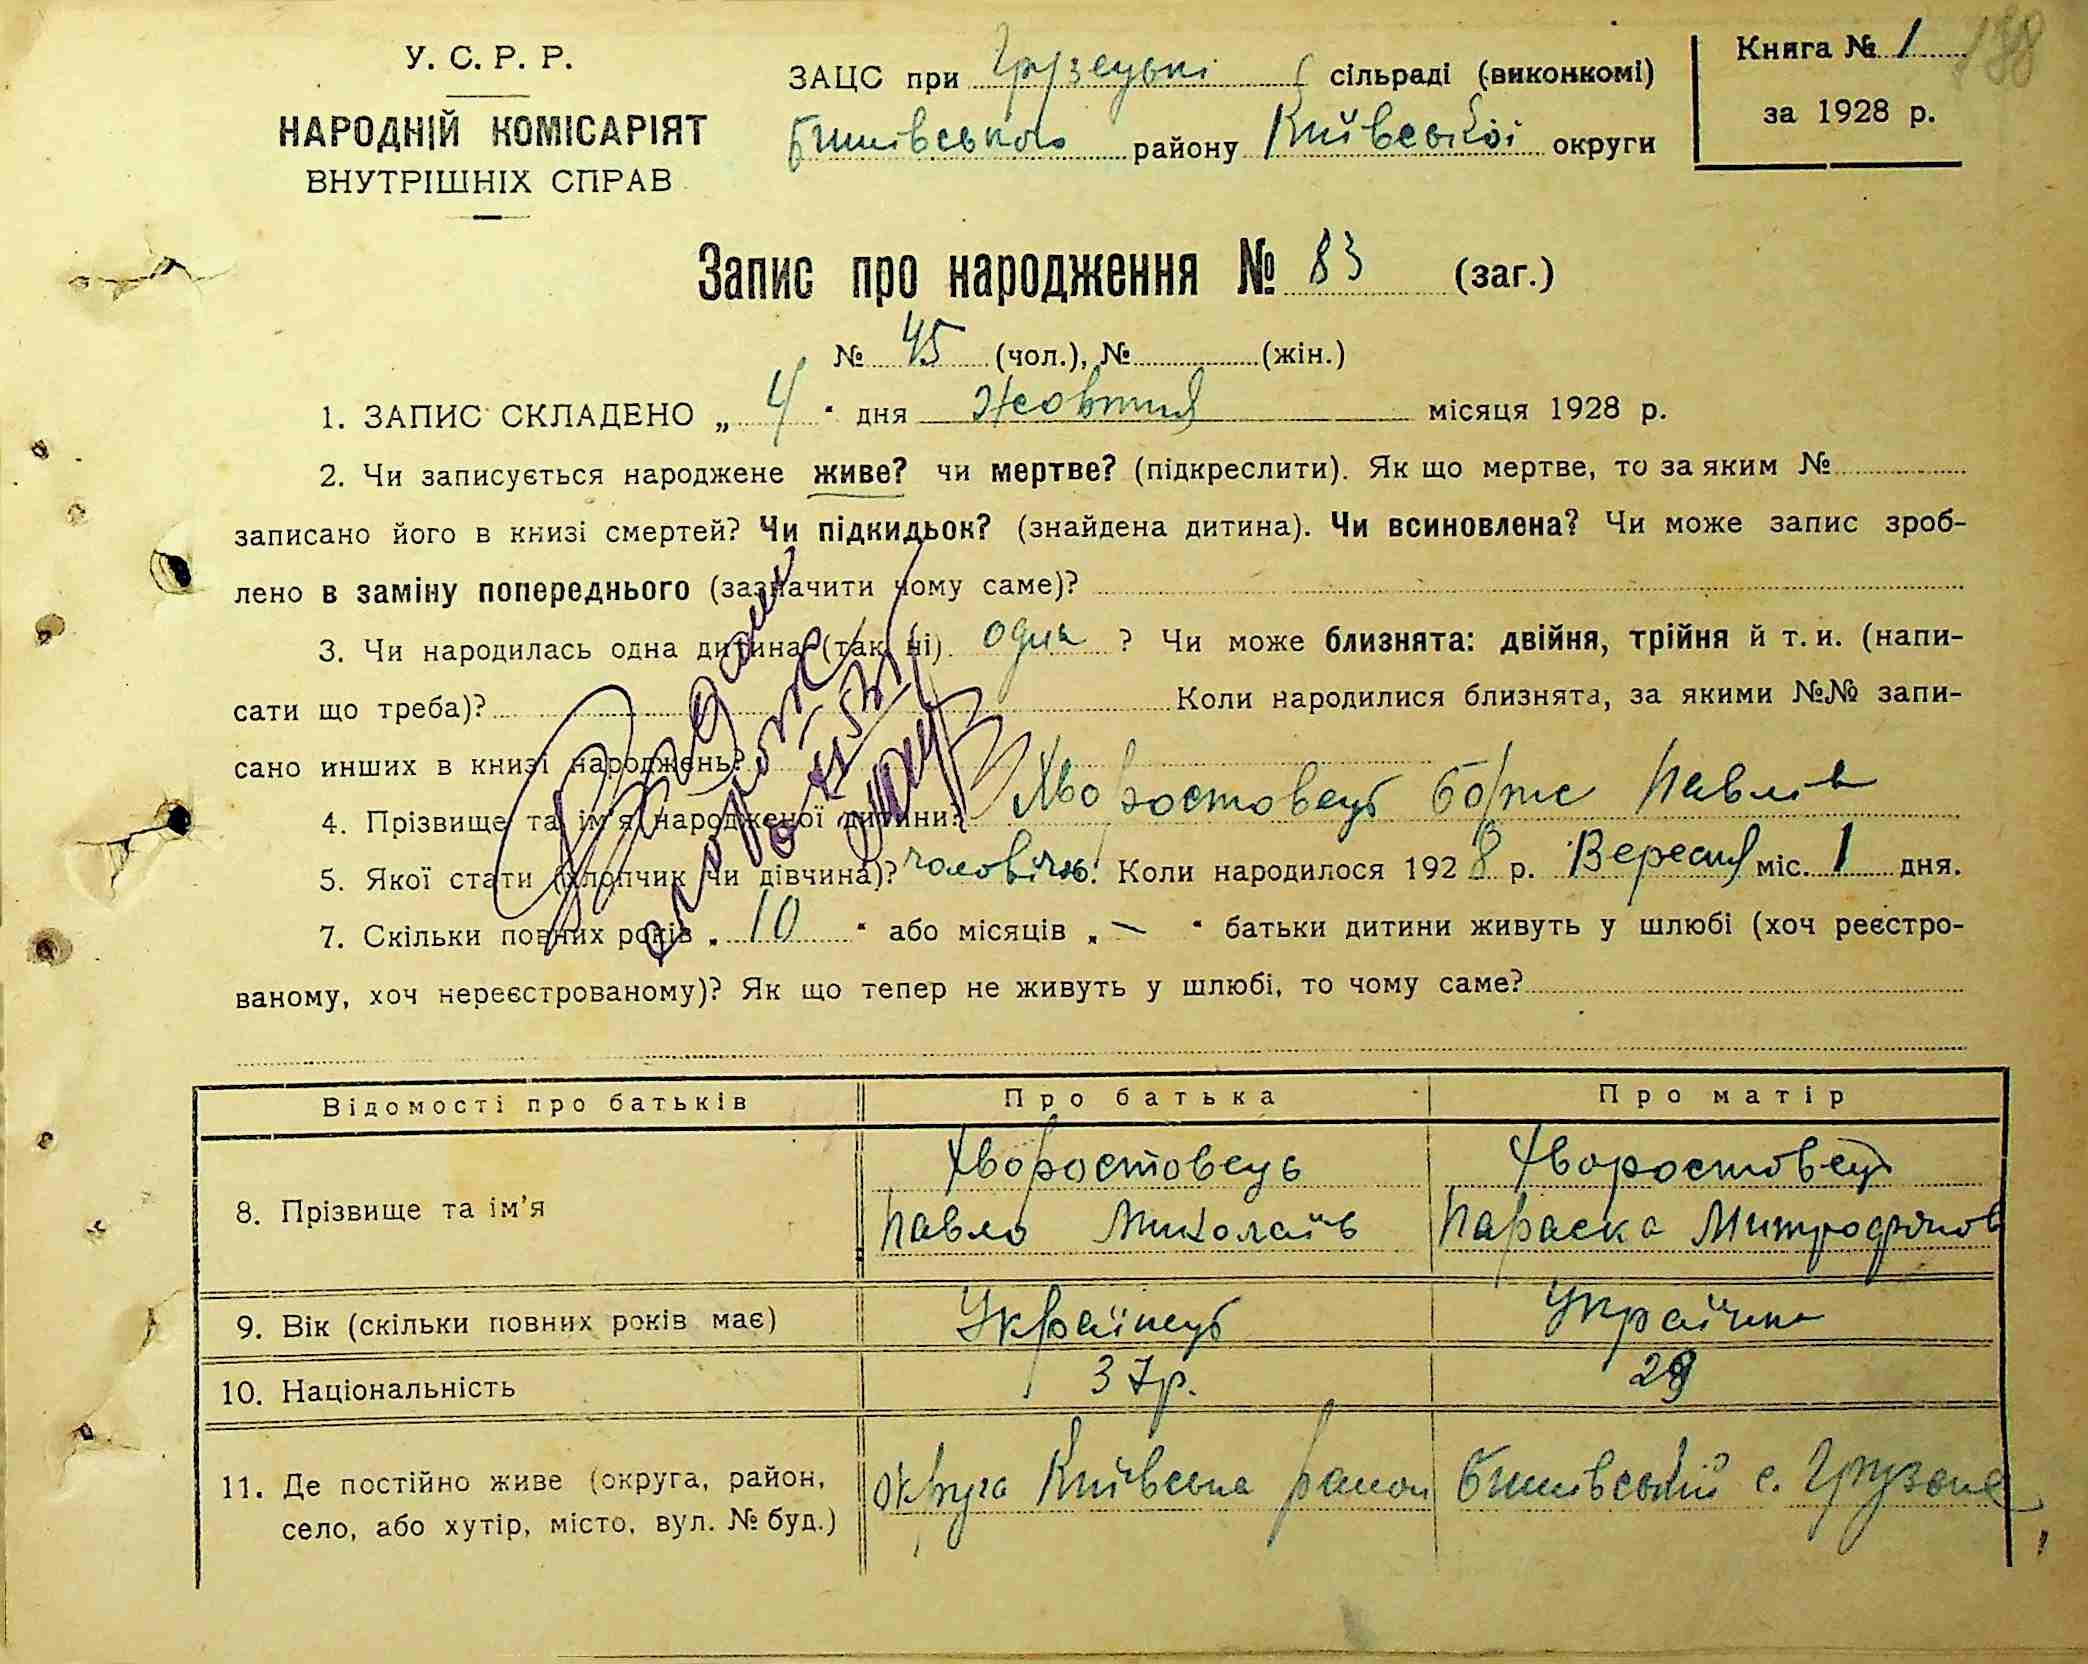 У. С. Р. Р.
НАРОДНІЙ КОМІСАРІЯТ
ВНУТРІШНІХ СПРАВ
ЗАЦС при Грузецькі сільраді (виконкомі)
Бишівського району Київської округи
Книга № 1 188
за 1928 р.
Запис про народження № 83 (заг.)
№ 45 (чол.), № (жін.)
1. ЗАПИС СКЛАДЕНО „ 4 “ дня Жовтня місяця 1928 р.
2. Чи записується народжене живе? чи мертве? (підкреслити). Як що мертве, то за яким №
записано його в книзі смертей? Чи підкидьок? (знайдена дитина). Чи всиновлена? Чи може запис зроб-
лено в заміну попереднього (зазначити чому саме)?
3. Чи народилась одна дитина (так, ні) одна ? Чи може близнята: двійня, трійня й т. и. (напи-
сати що треба)? Коли народилися близнята, за якими №№ запи-
сано инших в книзі народжень?
4. Прізвище та ім’я народженої дитини? Хворостовець Борис Павлів
5. Якої стати (хлопчик чи дівчина)? чоловіч. Коли народилося 1928 р. Вересня міс. 1 дня.
7. Скільки повних років „ 10 “ або місяців „ — “ батьки дитини живуть у шлюбі (хоч реєстро-
ваному, хоч нереєстрованому)? Як що тепер не живуть у шлюбі, то чому саме?
Відомості про батьків Про батька Про матір
8. Прізвище та ім’я Хворостовець Хворостовець
Павло Миколаїв Параска Митрофанов
9. Вік (скільки повних років має) Українець Українка
10. Національність 37р. 29
11. Де постійно живе (округа, район, округа Київська район Бишівський с. Грузьке
село, або хутір, місто, вул. № буд.)